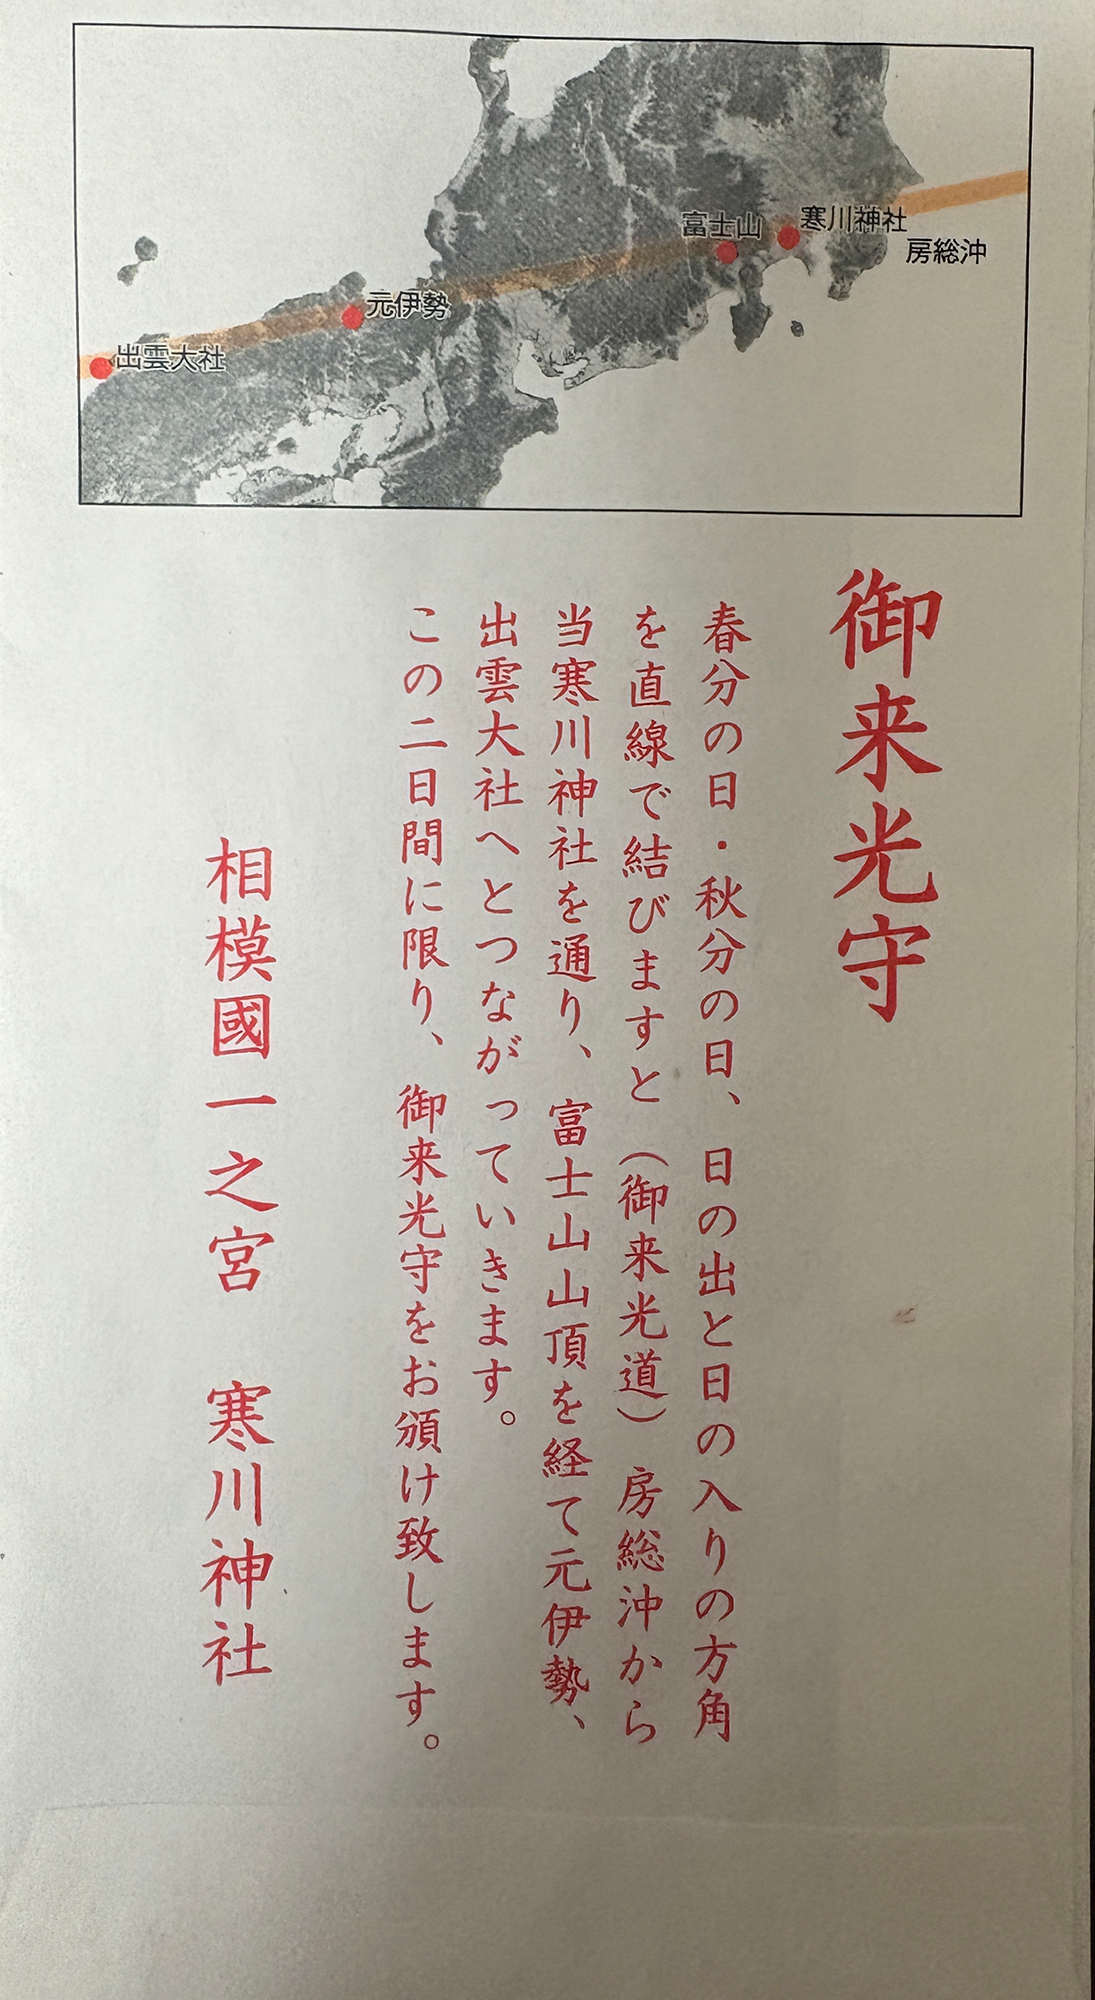 富士山
寒川神社
房総沖
元伊勢
出雲大社
御来光守
春分の日・秋分の日、日の出と日の入りの方角
を直線で結びますと（御来光道）房総沖から
当寒川神社を通り、富士山山頂を経て元伊勢、
出雲大社へとつながっていきます。
この二日間に限り、御来光守をお頒け致します。
相模國一之宮　寒川神社